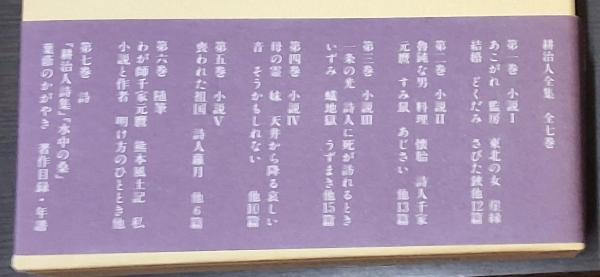 耕治人全集 全七巻
第一巻 小説Ⅰ
あこがれ 監房 東北の女 崖縁
結婚 どくだみ さびた鋏他12篇
第二巻 小説Ⅱ
魯鈍な男 料理 懐胎 詩人千家
元麿 すみ鼠 あじさい 他13篇
第三巻 小説Ⅲ
一条の光 詩人に死が訪れるとき
いずみ 蟻地獄 うずまき他15篇
第四巻 小説Ⅳ
母の霊 妹 天井から降る哀しい
音 そうかもしれない 他10篇
第五巻 小説Ⅴ
喪われた祖国 詩人蘿月 他6篇
第六巻 随筆
わが師千家元麿 熊本風土記 私
小説と作者 明け方のひととき他
第七巻 詩
「耕治人詩集」「水中の桑」
葉蔭のかがやき 著作目録・年譜